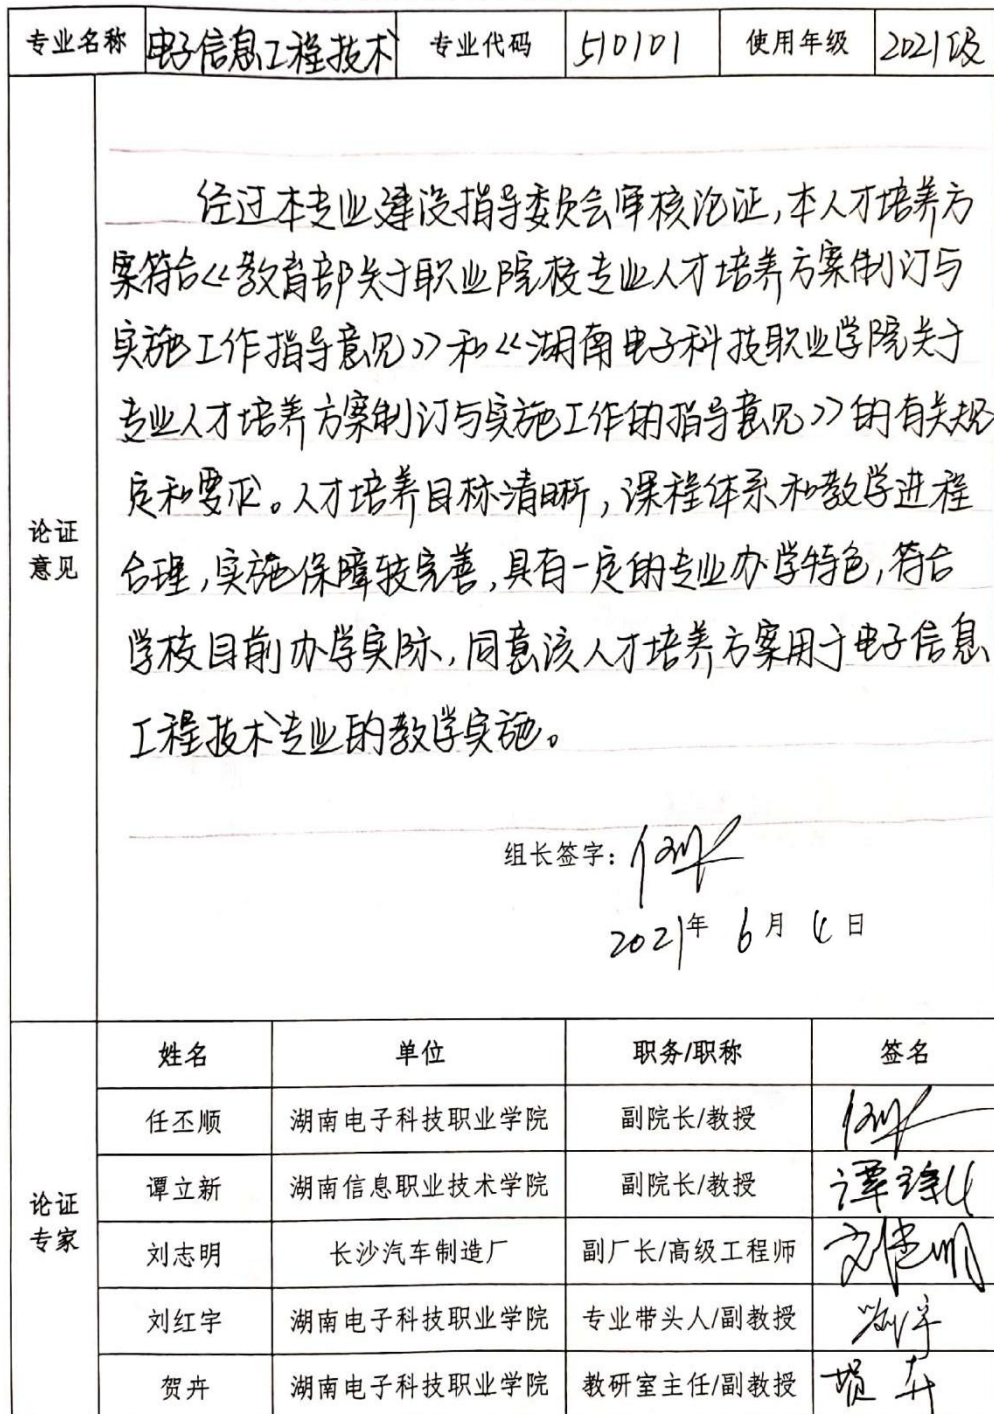 专业名称 电子信息工程技术 专业代码 510101 使用年级 2021级
经过本专业建设指导委员会审核论证,本人才培养方
案符合《教育部关于职业院校专业人才培养方案制订与
实施工作指导意见》和《湖南电子科技职业学院关于
专业人才培养方案制订与实施工作的指导意见》的有关规
定和要求。人才培养目标清晰,课程体系和教学进程
合理,实施保障较完善,具有一定的专业办学特色,符合
学校目前办学实际,同意该人才培养方案用于电子信息
工程技术专业的教学实施。
论证
意见
组长签字:
2021年 6月 4日
论证
专家
姓名 单位 职务/职称 签名
任丕顺 湖南电子科技职业学院 副院长/教授
谭立新 湖南信息职业技术学院 副院长/教授
刘志明 长沙汽车制造厂 副厂长/高级工程师
刘红宇 湖南电子科技职业学院 专业带头人/副教授
贺卉 湖南电子科技职业学院 教研室主任/副教授